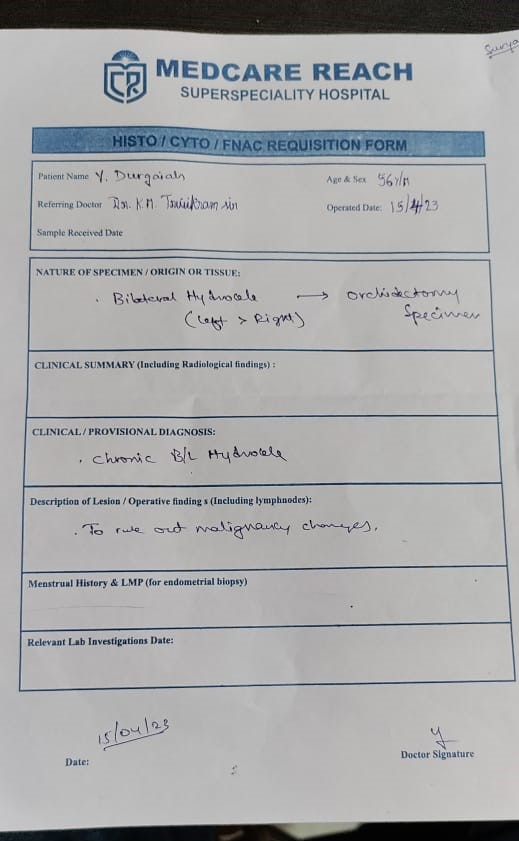 Surya
MEDCARE REACH
SUPERSPECIALITY HOSPITAL
HISTO / CYTO / FNAC REQUISITION FORM
Patient Name Y. Durgaiah Age & Sex 56Y/M
Referring Doctor Dr. K.M. Operated Date: 15/4/23
Sample Received Date
NATURE OF SPECIMEN / ORIGIN OR TISSUE:
. Bilateral Hydrocele → Orchidectomy
(Left > Right) Specimen
CLINICAL SUMMARY (Including Radiological findings) :
CLINICAL / PROVISIONAL DIAGNOSIS:
. Chronic B/L Hydrocele
Description of Lesion / Operative finding s (Including lymphnodes):
. To rule out malignancy changes.
Menstrual History & LMP (for endometrial biopsy)
Relevant Lab Investigations Date:
15/04/23
Date:
Doctor Signature